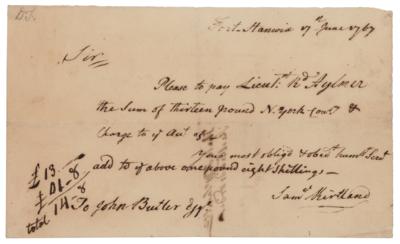 Fort Stanwix 17th June 1767
Sir
Please to pay Lieutt. Rd Aylmer
the Sum of thirteen pound N. York Curr. &
Charge to ye Acct. of
Your most oblig'd & obedt. humle. Servt
add to ye above one pound eight Shillings –
Saml. Kirtland
£ 13
£ 01-8
total 14-8
To John Butler Esqr.